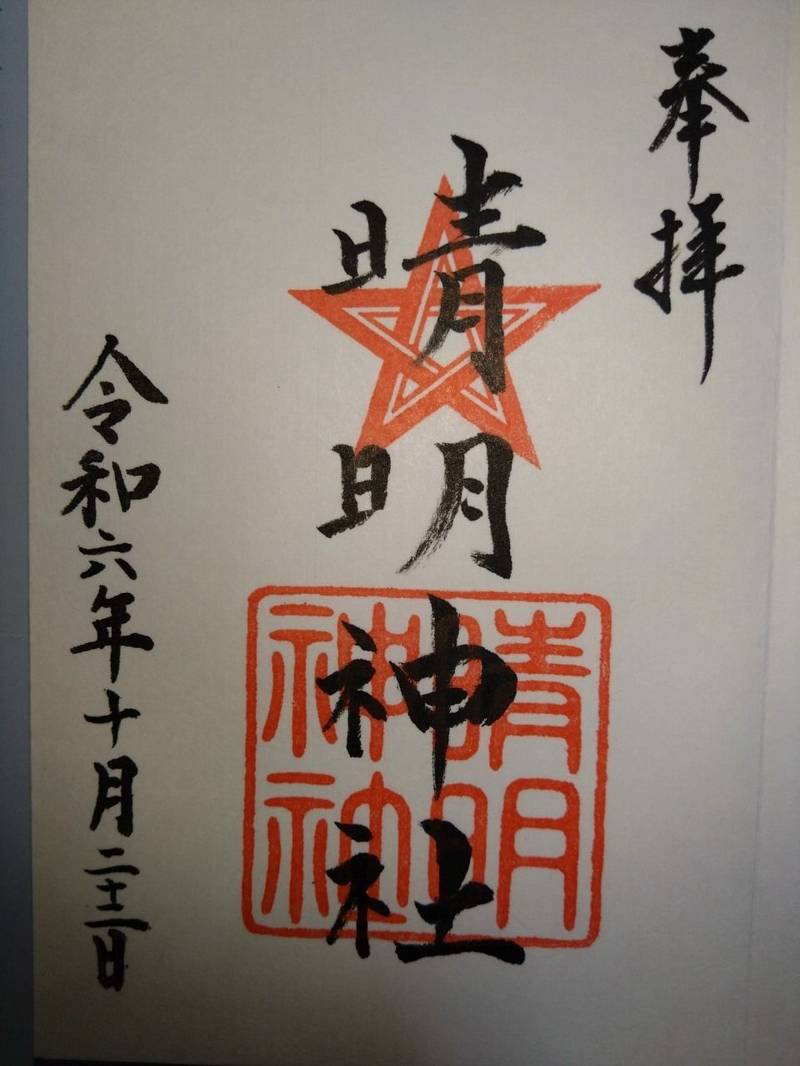 奉拝
晴明神社
晴明
神社
令和六年十月二十二日